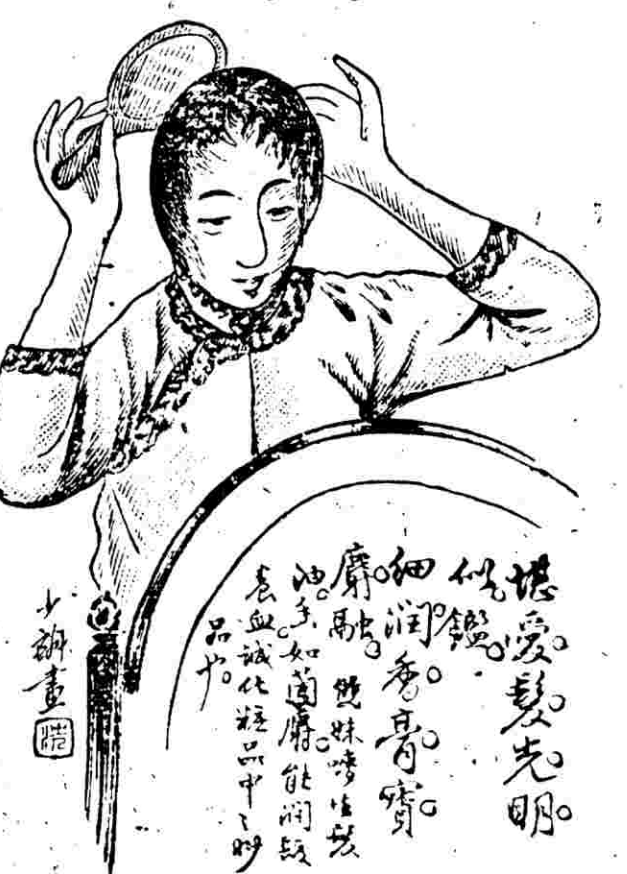 堪愛髮光明。
似鑑。
細潤香膏寶
麝融。雙妹嘜生髮
油。香如蘭麝。能潤髮
養血誠化粧品中之妙
品也。
少 畫